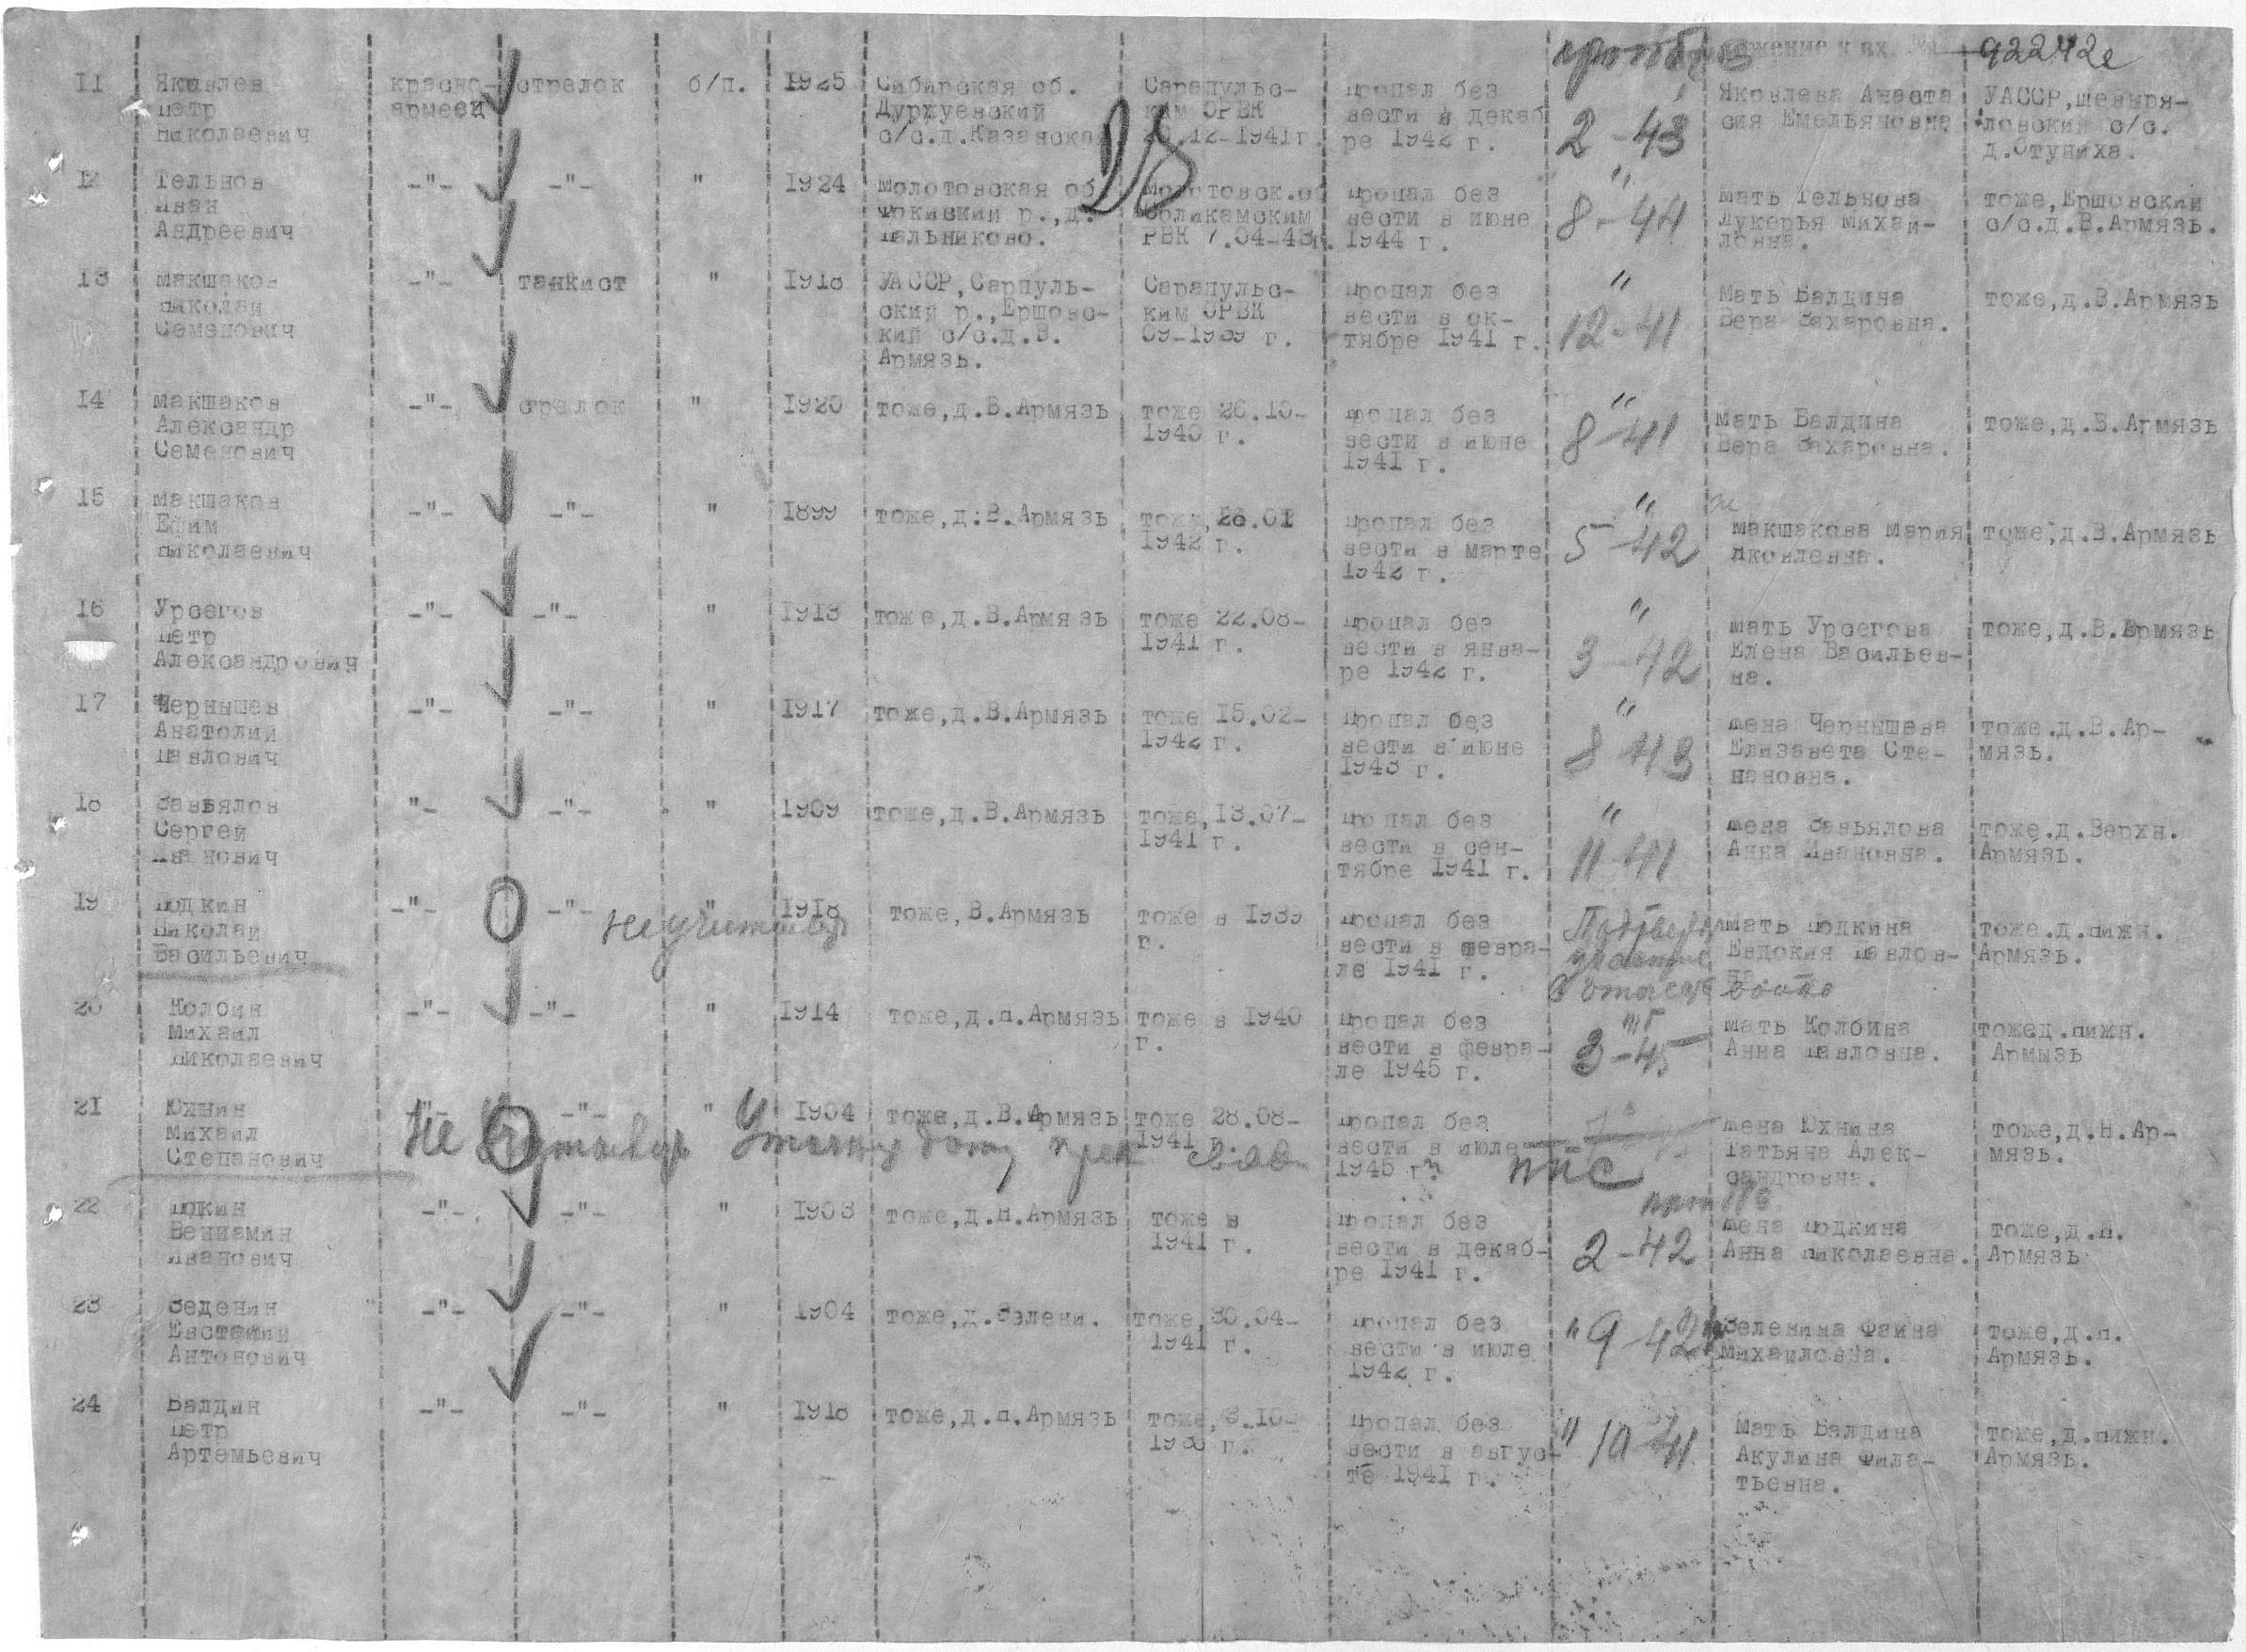 92242с
11 Яковлев красно- стрелок б/п. 1925 Сибирская об. Сарапульс- пропал без Яковлева Анаста УАССР, Шевыря-
Петр армеец Дуржуевский ким ОРВК вести в декаб 2-43 сия Емельяновна ловский с/с.
Николаевич с/с.д.Казанская .12-1941г. ре 1942 г. д.Отуниха.
12 Тельнов -"- -"- " 1924 Молотовская об. Молотовск.об пропал без " мать Тельнова тоже, Ершовский
Иван р.,д. Соликамским вести в июне 8-44 Лукерья Михай- с/с.д.В.Армязь.
Андреевич Пальниково. РВК 7.04-43г. 1944 г. ловна.
13 Макшаков -"- танкист " 1918 УАССР, Сарпуль- Сарапульс- пропал без " Мать Балдина тоже,д.В.Армязь
Николай ский р.,Ершовс- ким ОРВК вести в ок- 12-41 Вера Захаровна.
Семенович кий с/с.д.В. 09-1939 г. тябре 1941 г.
Армязь.
14 Макшаков -"- стрелок " 1920 тоже,д.В.Армязь тоже 26.10- пропал без " мать Балдина тоже,д.В.Армязь
Александр 1940 г. вести в июне 8-41 Вера Захаровна.
Семенович 1941 г.
15 Макшаков -"- -"- " 1899 тоже,д.В.Армязь .01 пропал без " Макшакова Мария тоже,д.В.Армязь
Ефим 1942 г. вести в марте 5-42 Яковлевна.
Николаевич 1942 г.
16 Урсегов -"- -"- " 1913 тоже,д.В.Армязь тоже 22.08- пропал без " мать Урсегова тоже,д.В.Армязь
Петр 1941 г. вести в янва- 3-42 Елена Васильев-
Александрович ре 1942 г. на.
17 Чернышев -"- -"- " 1917 тоже,д.В.Армязь тоже 15.02- пропал без " жена Чернышева тоже.д.В.Ар-
Анатолий 1942 г. вести в июне 8 43 Елизавета Сте- мязь.
Павлович 1943 г. пановна.
18 Завьялов "- -"- " 1909 тоже,д.В.Армязь тоже,13.07- пропал без " жена Завьялова тоже.д.Верхн.
Сергей 1941 г. вести в сен- 11-41 Анна Ивановна. Армязь.
Иванович тябре 1941 г.
19 Подкин -"- -"- " 1918 тоже,В.Армязь тоже в 1939 пропал без мать Подкина тоже.д.Нижн.
Николай г. вести в февра- Евдокия Павлов- Армязь.
Васильевич ле 1941 г. на
20 Колбин -"- -"- " 1914 тоже,д.Н.Армязь тоже в 1940 пропал без мать Колбина тоже д.Нижн.
Михаил г. вести в февра- 3-45 Анна Павловна. Армызь
Николаевич ле 1945 г.
21 Юхнин -"- " 1904 тоже,д.В.Армязь тоже 28.08- пропал без жена Юхнина тоже,д.Н.Ар-
Михаил Не 1941 г. вести в июле Татьяна Алек- мязь.
Степанович 1945 г. ппс сандровна.
22 -"- -"- " 1903 тоже,д.Н.Армязь тоже в пропал без жена Подкина тоже,д.Н.
Вениамин 1941 г. вести в декаб- 2-42 Анна Николаевна. Армязь
Иванович ре 1941 г.
23 -"- -"- " 1904 тоже,д.Зелени. тоже,30.04- пропал без " 9-42 Зеленина Фаина тоже,д.Н.
1941 г. вести в июле Михайловна. Армязь.
Антонович 1942 г.
24 Балдин -"- -"- " 1918 тоже,д.Н.Армязь пропал без " 10-41 Мать Балдина тоже,д.Нижн.
Петр вести в авгус- Акулина Фила- Армязь.
Артемьевич те 1941 г. тьевна.